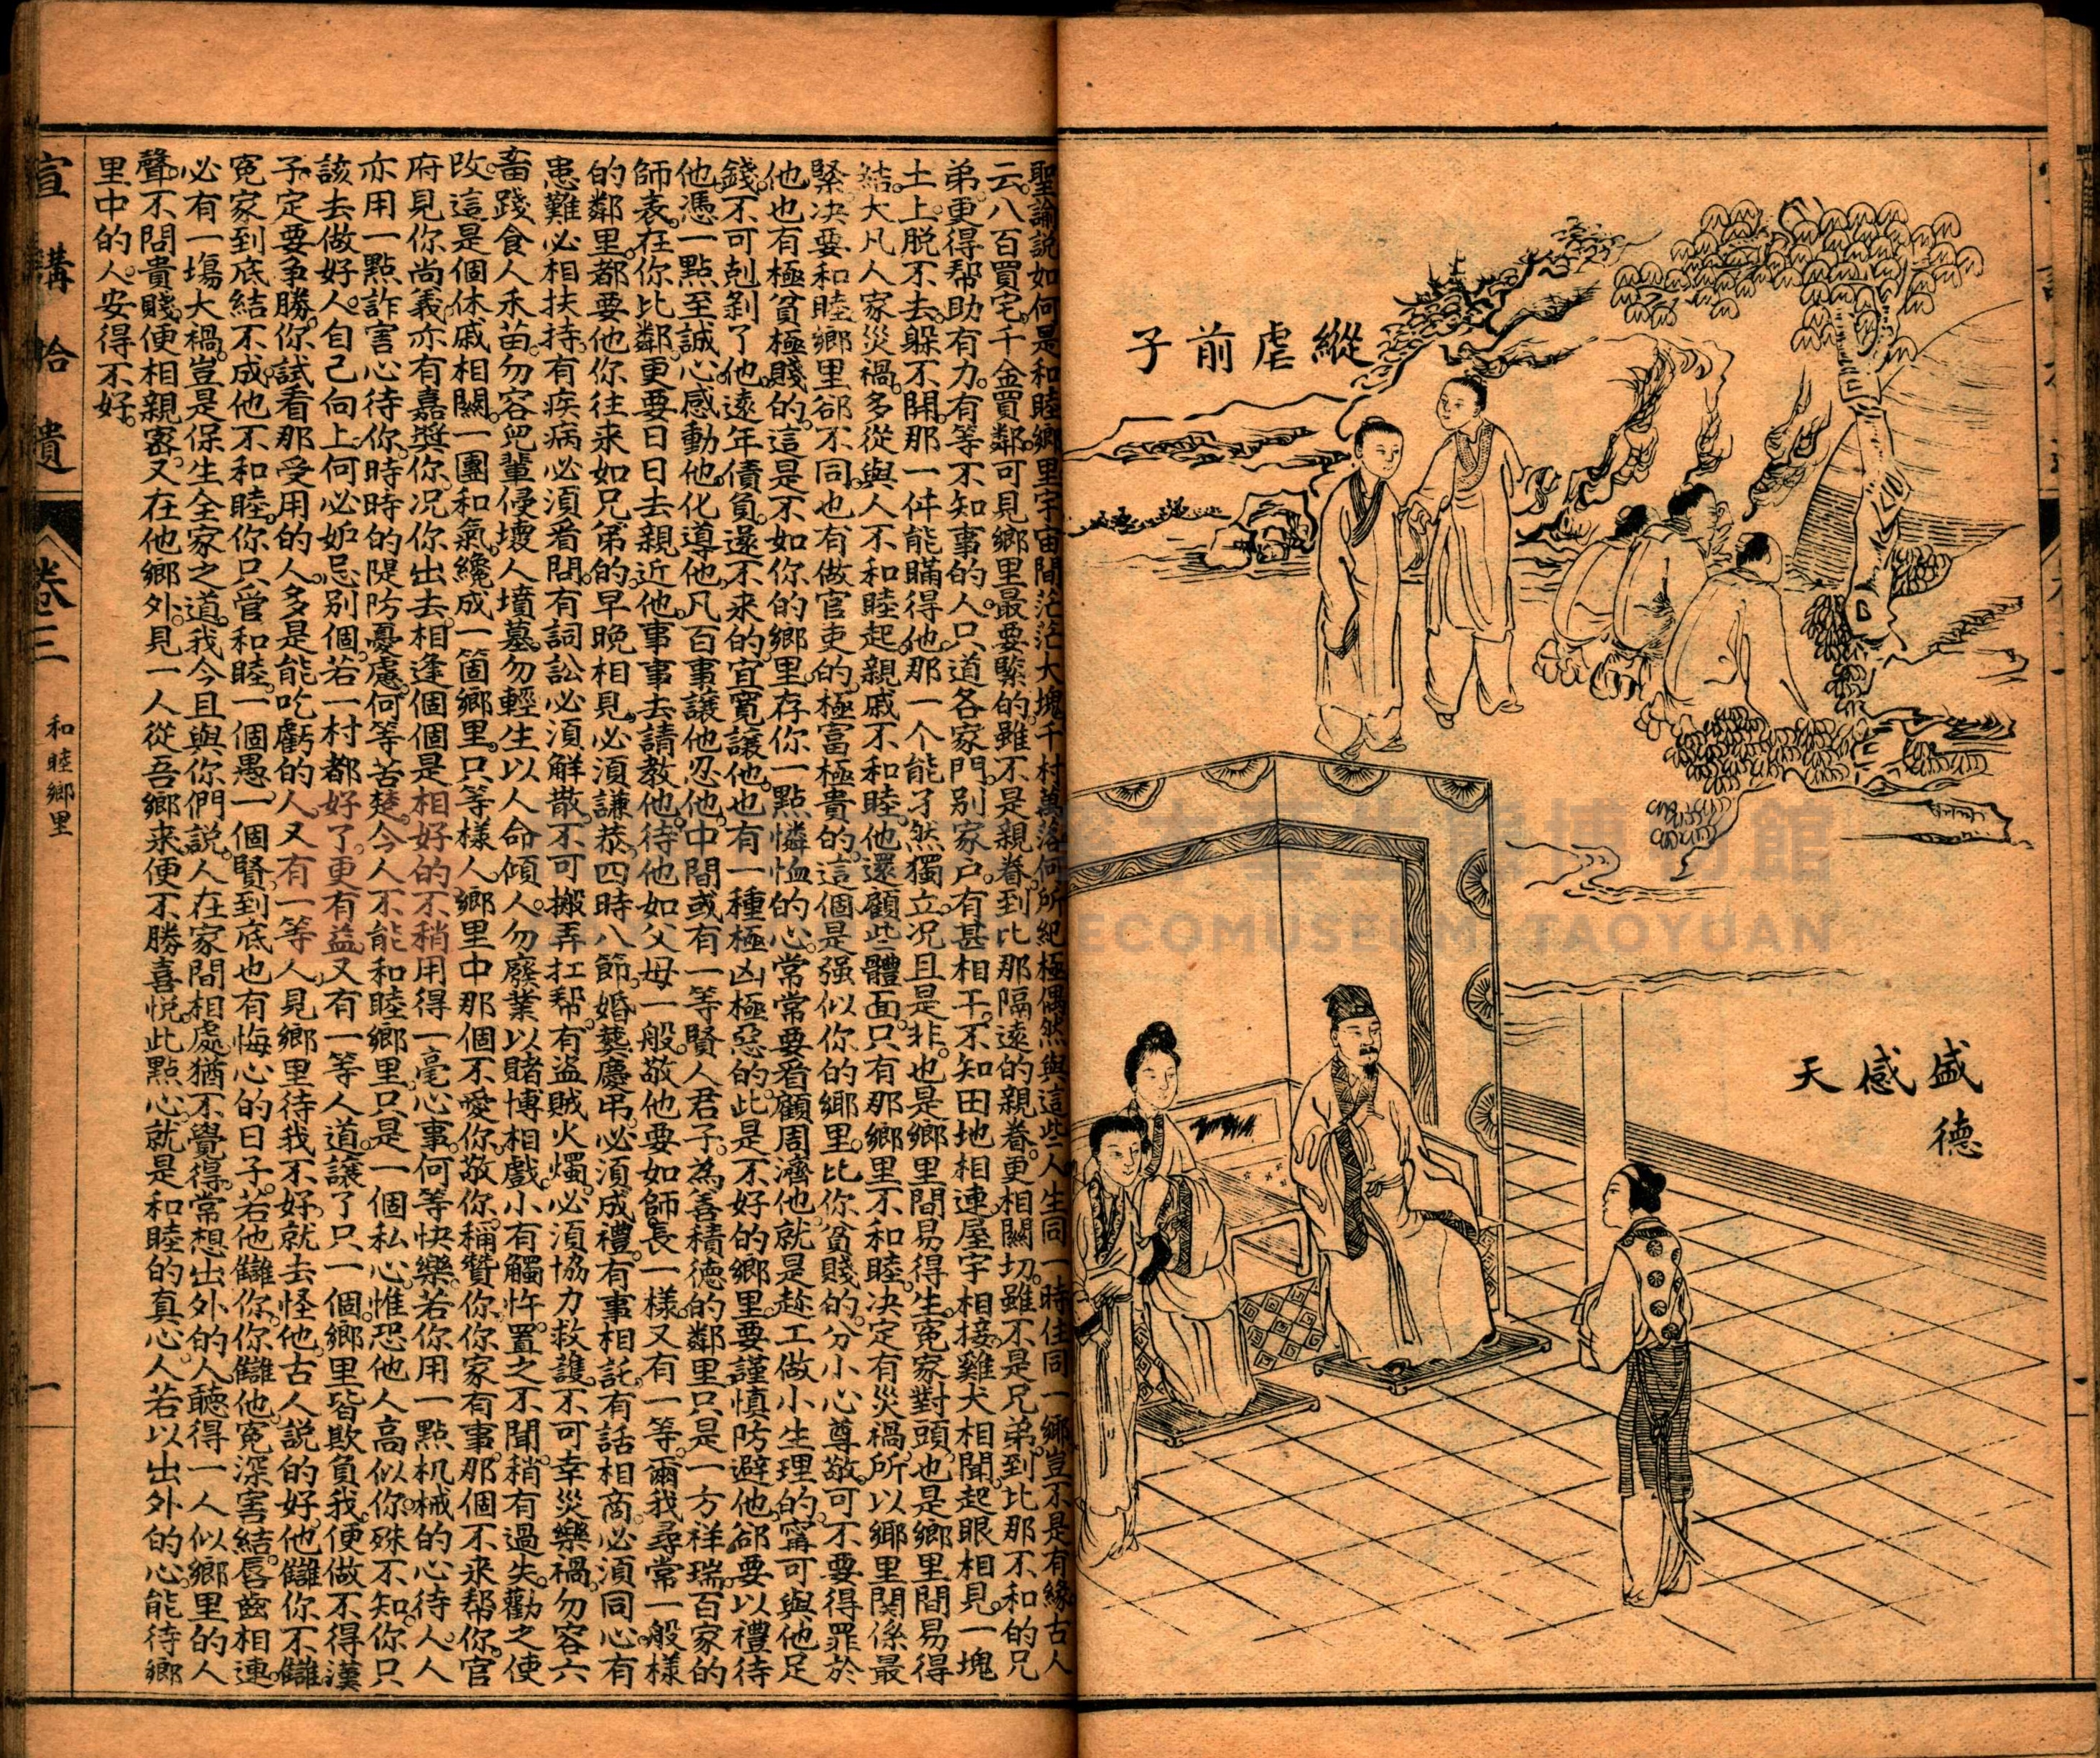 縱虐前子
盛德感天
聖諭說如何是和睦鄉里宇宙間茫茫大塊千村萬落何所紀極偶然與這些人生同一時住同一鄉豈不是有緣古人
云八百買宅千金買鄰可見鄉里最要緊的雖不是親眷到比那隔遠的親眷更相關切雖不是兄弟到比那不和的兄
弟更得帮助有力有等不知事的人只道各家門別家户有甚相干不知田地相連屋宇相接雞犬相聞起眼相見一塊
土上脱不去躲不開那一件能瞞得他那一个能孑然獨立况且是非也是鄉里間易得生冤家對頭也是鄉里間易得
結大凡人家災禍多從與人不和睦起親戚不和睦他還顧些體面只有那鄉里不和睦決定有災禍所以鄉里関係最
緊决要和睦鄉里郤不同也有做官吏的極富極貴的這個是强似你的鄉里比你貧賤的分小心尊敬可不要得罪於
他也有極貧極賤的這是不如你的鄉里存你一點憐恤的心常常要看顧周濟他就是趂工做小生理的寗可與他足
錢不可剋剝了他遠年債負還不来的宜寬讓他也有一種極凶極惡的此是不好的鄉里要謹慎防避他郤要以禮待
他憑一點至誠心感動他化導他凡百事讓他忍他中間或有一等賢人君子為善積德的鄰里只是一方祥瑞百家的
師表在你比鄰更要日日去親近他事事去請教他待他如父母一般敬他要如師長一樣又有一等爾我尋常一般樣
的鄰里都要他你往来如兄弟的早晚相見必須謙恭四時八節婚葬慶弔必須成禮有事相託有話相商必須同心有
患難必相扶持有疾病必須看問有詞訟必須觧散不可搬弄扛帮有盗賊火燭必須協力救護不可幸災樂禍勿容六
畜踐食人禾苗勿容兒輩侵壊人墳墓勿輕生以人命傾人勿廢業以賭博相戲小有觸忤置之不聞稍有過失勸之使
改這是個休戚相關一團和氣纔成一箇鄉里只等樣人鄉里中那個不愛你敬你稱贊你你家有事那個不来帮你官
府見你尚義亦有嘉獎你况你出去相逢個個是相好的不稍用得一毫心事何等快樂若你用一點机械的心待人人
亦用一點詐害心待你時時的隄防憂慮何等苦楚今人不能和睦鄉里只是一個私心惟恐他人高似你殊不知你只
該去做好人自己向上何必妒忌別個若一村都好了更有益又有一等人道讓了只一個鄉里皆欺負我便做不得漢
子定要争勝你試看那受用的人多是能吃虧的人又有一等人見鄉里待我不好就去怪他古人説的好他讎你不讎
冤家到底結不成他不和睦你只管和睦一個愚一個賢到底也有悔心的日子若他讎你你讎他冤深害結唇齒相連
必有一塲大禍豈是保生全家之道我今且與你們説人在家間相處猶不覺得常想出外的人聽得一人似鄉里的人
聲不問貴賤便相親宻又在他鄉外見一人從吾鄉来便不勝喜悦此點心就是和睦的真心人若以出外的心能待鄉
里中的人安得不好
宣講拾遺
卷三
和睦鄉里
一